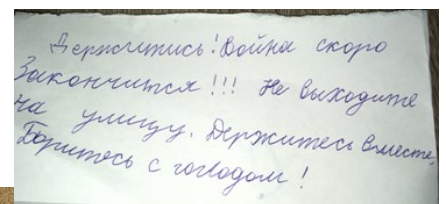 Держитись! Война скоро
Закончится!!! Не выходите
на улицу. Держитесь вместе,
Боритесь с голодом!